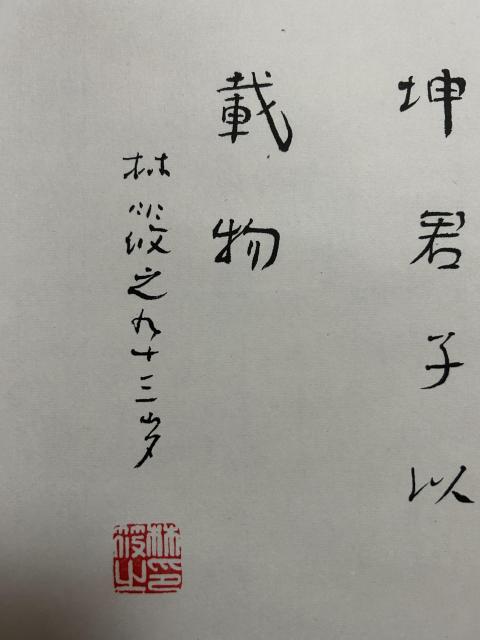 坤君子以
載物
林筱之九十三岁
林筱之印